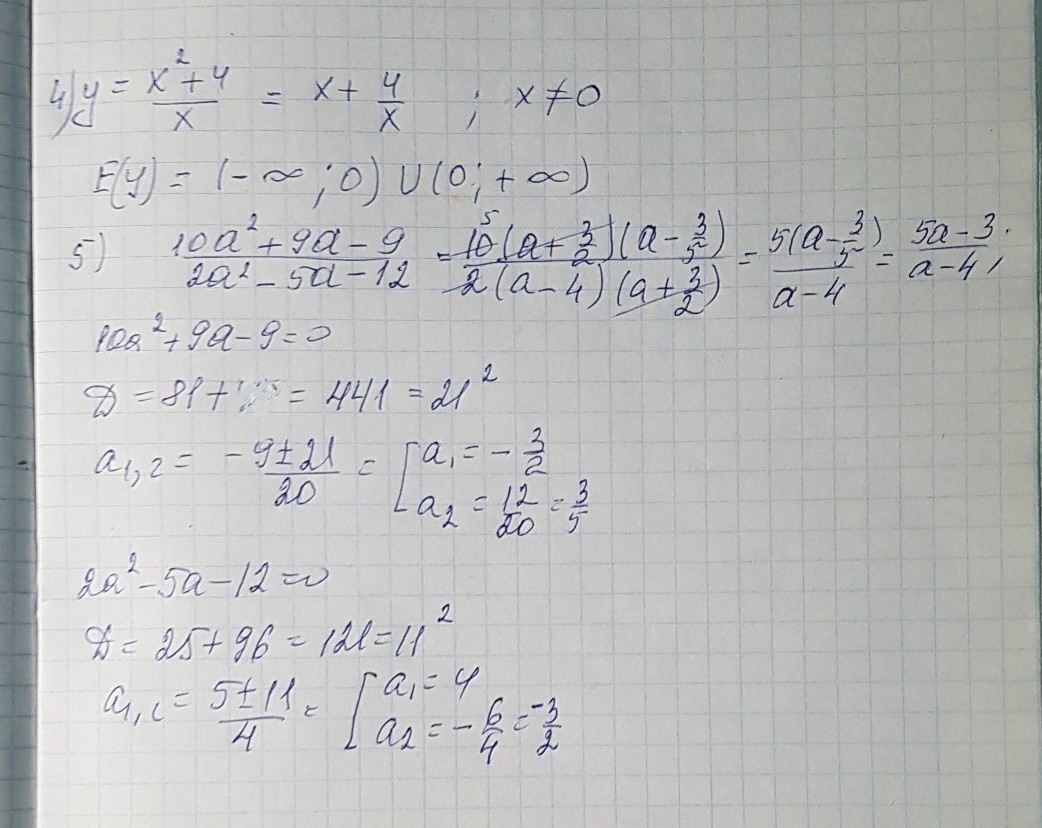 4) y = x²+4/x = x + 4/x ; x ≠ 0
E(y) = (-∞; 0) ∪ (0; +∞)
5) 10a²+9a-9/2a²-5a-12 = 10 5(a+3/2)(a-3/5)/2(a-4)(a+3/2) = 5(a-3/5)/a-4 = 5a-3/a-4;
10a²+9a-9=0
D = 81+ = 441 = 21²
a1,2 = -9±21/20 = [a1 = -3/2
a2 = 12/20 = 3/5
2a²-5a-12=0
D = 25+96 = 121 = 11²
a1,2 = 5±11/4 = [a1 = 4
a2 = -6/4 = -3/2